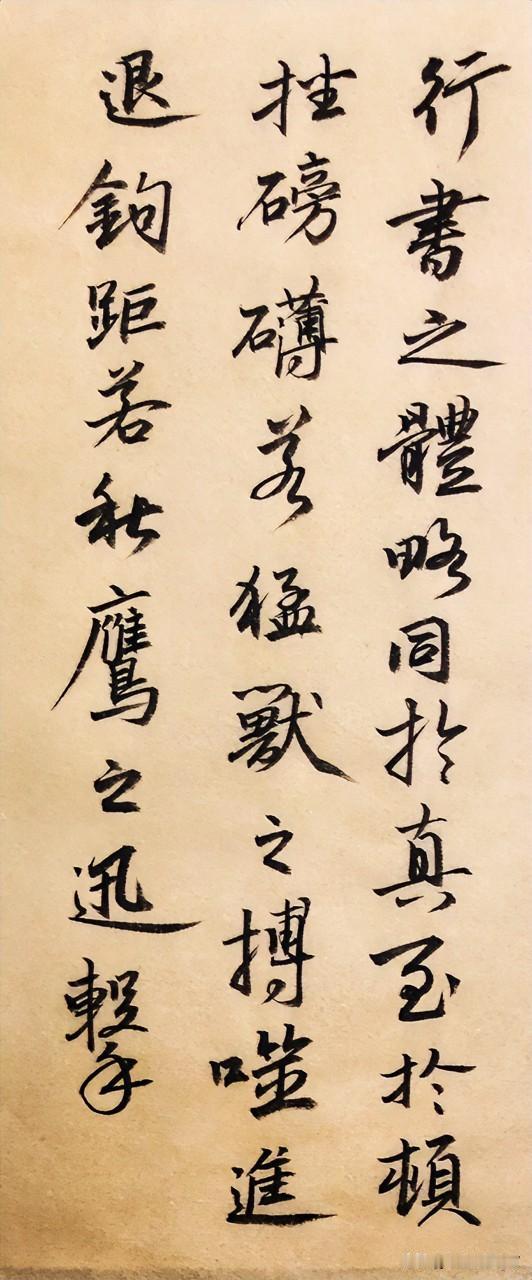 行書之體略同於真至於頓
挫磅礴若猛獸之搏噬進
退鉤距若秋鷹之迅擊